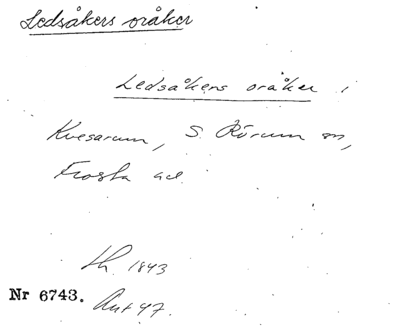 Ledsåkers oråker
Ledsåkers oråker i
Kvesarum, S. Rörum sn,
Frosta hd.
lh. 1843
Nr 6743. Ant 47.